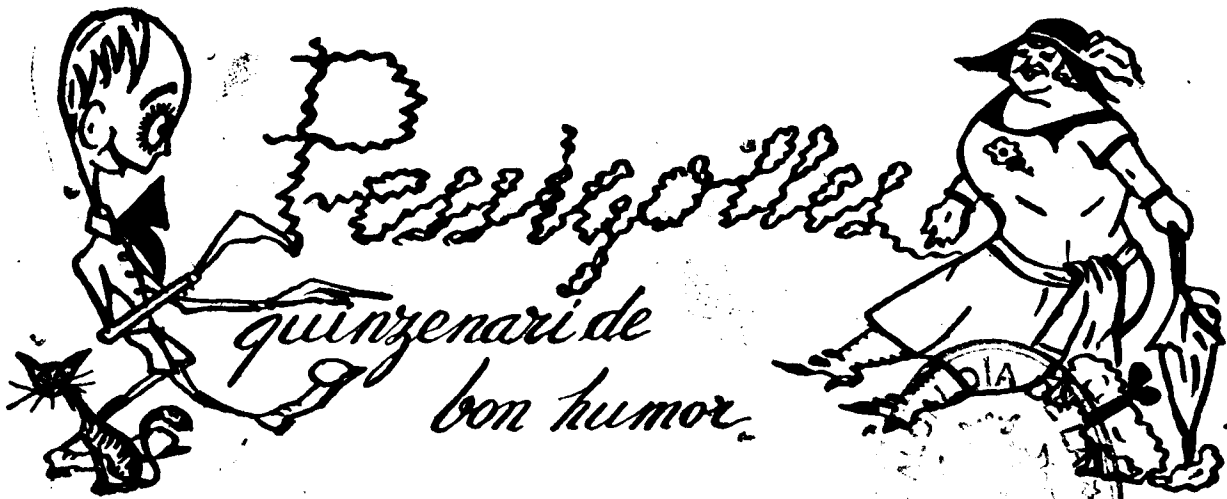 Pessigolles
quinzenari de
bon humor
DIA